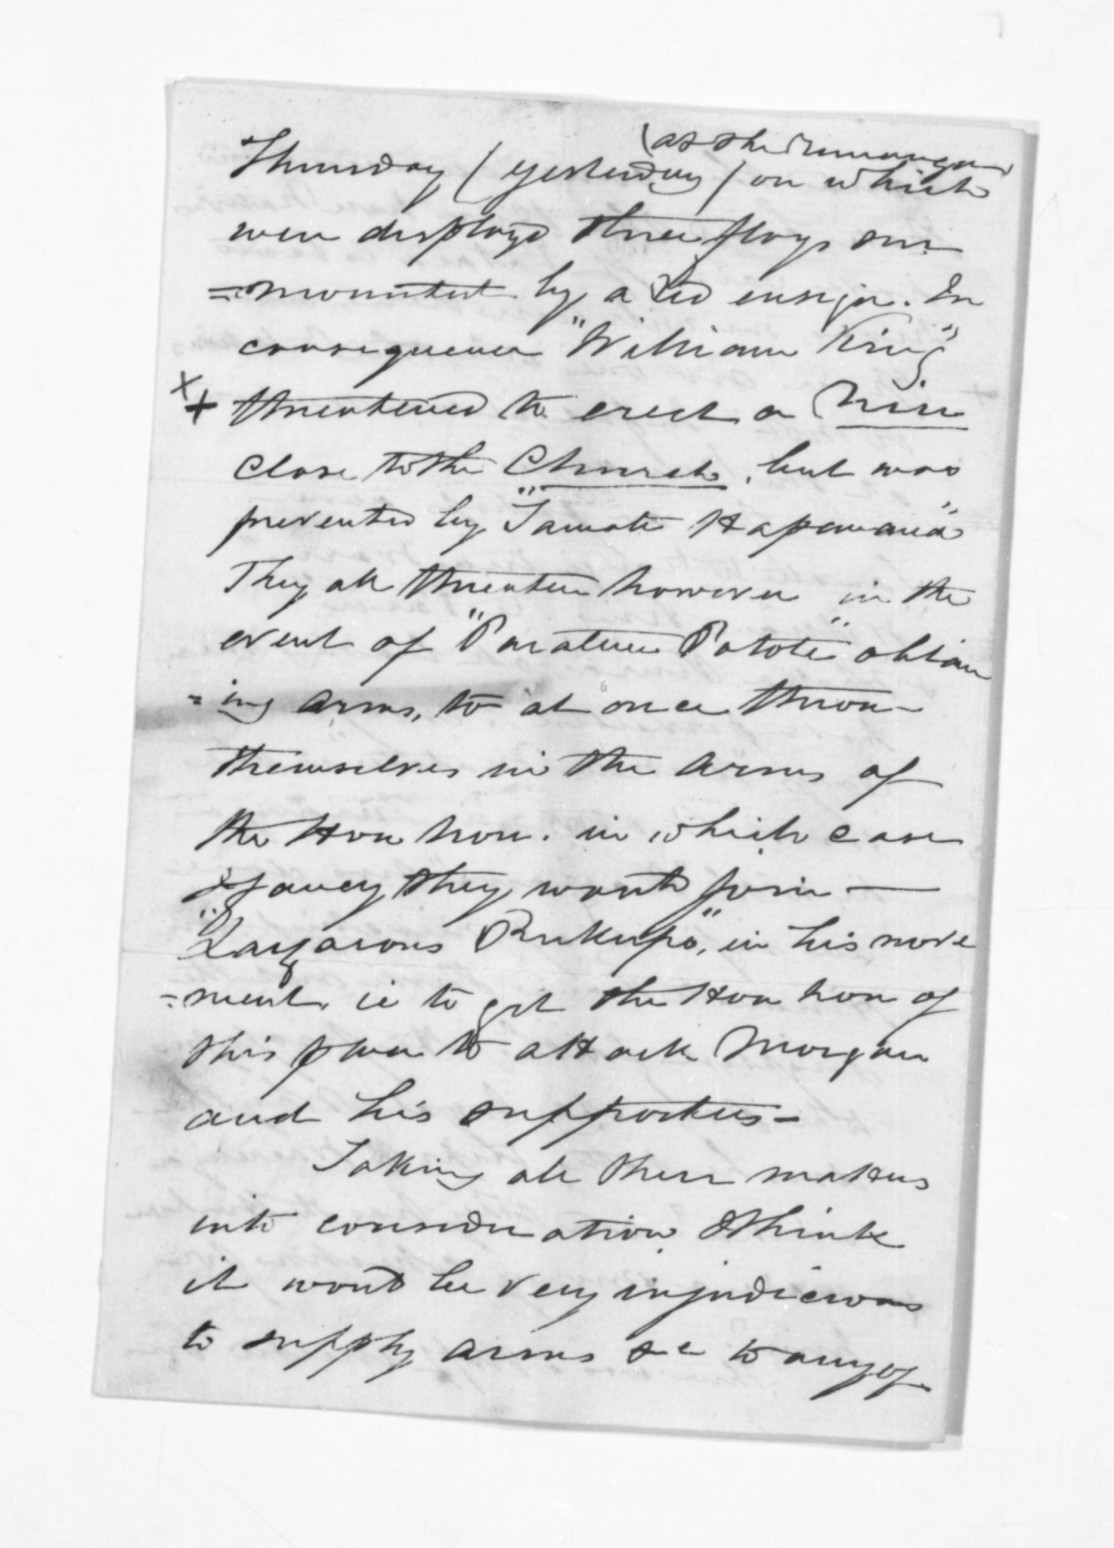 (as the Rimunga
Thursday (yesterday) on which
were displayd three flags sur
=mounted by a red ensign. In
consequence "William King"
threatened to erect a Niu
close to the Church, but was
prevented by "Tamati Hapimana"
They all threaten however in the
event of "Paratene Pototi" obtain
=ing arms, to at once throw
themselves in the arms of
the Hau hau. in which case
I fancy they would join —
"Lazarous Rukupo", in his move
=ment, ie to get the Hau hau of
this place to attack Morgan
and his supporters –
Taking all these matters
into consideration I think
it would be very injudicious
to supply arms &c to any of